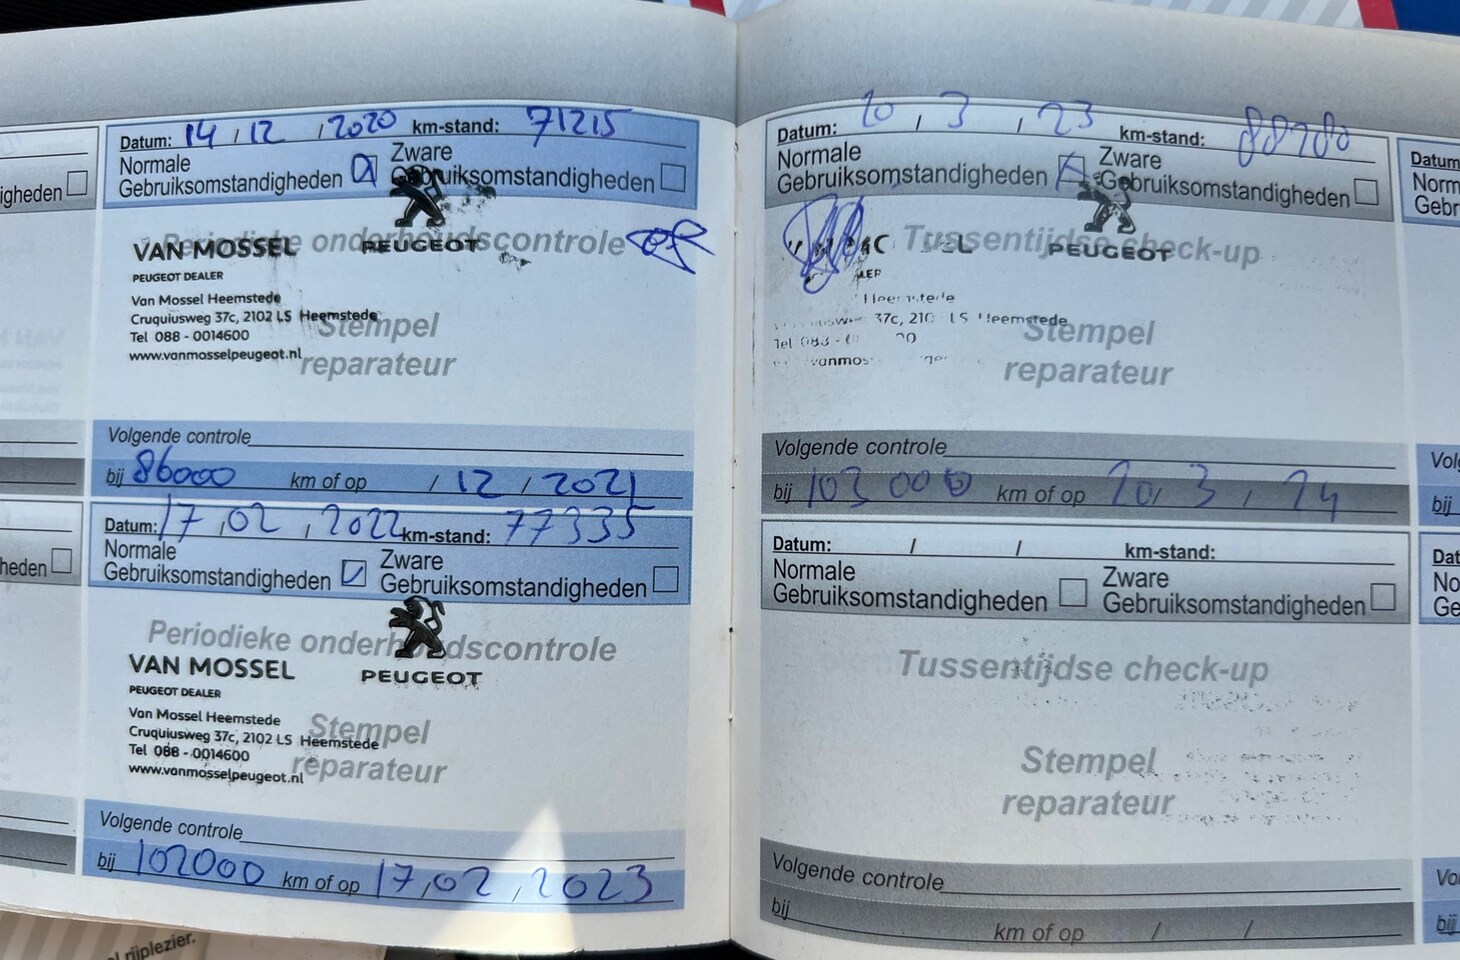 Datum: 14 / 12 / 2020 km-stand: 71215
Normale
Gebruiksomstandigheden
Zware
Gebruiksomstandigheden
Periodieke onderhoudscontrole
VAN MOSSEL
PEUGEOT DEALER
PEUGEOT
Van Mossel Heemstede
Cruquiusweg 37c, 2102 LS Heemstede
Tel 088 - 0014600
www.vanmosselpeugeot.nl
Stempel
reparateur
Volgende controle
bij 86000 km of op / 12 / 2021
Datum: 17 / 02 / 2022 km-stand: 77335
Normale
Gebruiksomstandigheden
Zware
Gebruiksomstandigheden
Periodieke onderhoudscontrole
VAN MOSSEL
PEUGEOT DEALER
PEUGEOT
Van Mossel Heemstede
Cruquiusweg 37c, 2102 LS Heemstede
Tel 088 - 0014600
www.vanmosselpeugeot.nl
Stempel
reparateur
Volgende controle
bij 102000 km of op 17 / 02 / 2023
Datum: 20 / 3 / 23 km-stand:
Normale
Gebruiksomstandigheden
Zware
Gebruiksomstandigheden
Tussentijdse check-up
PEUGEOT
37c, LS Heemstede
Stempel
reparateur
Volgende controle
bij 103000 km of op 20 / 3 / 24
Datum: / / km-stand:
Normale
Gebruiksomstandigheden
Zware
Gebruiksomstandigheden
Tussentijdse check-up
Stempel
reparateur
Volgende controle
bij km of op / /
rijplezier.